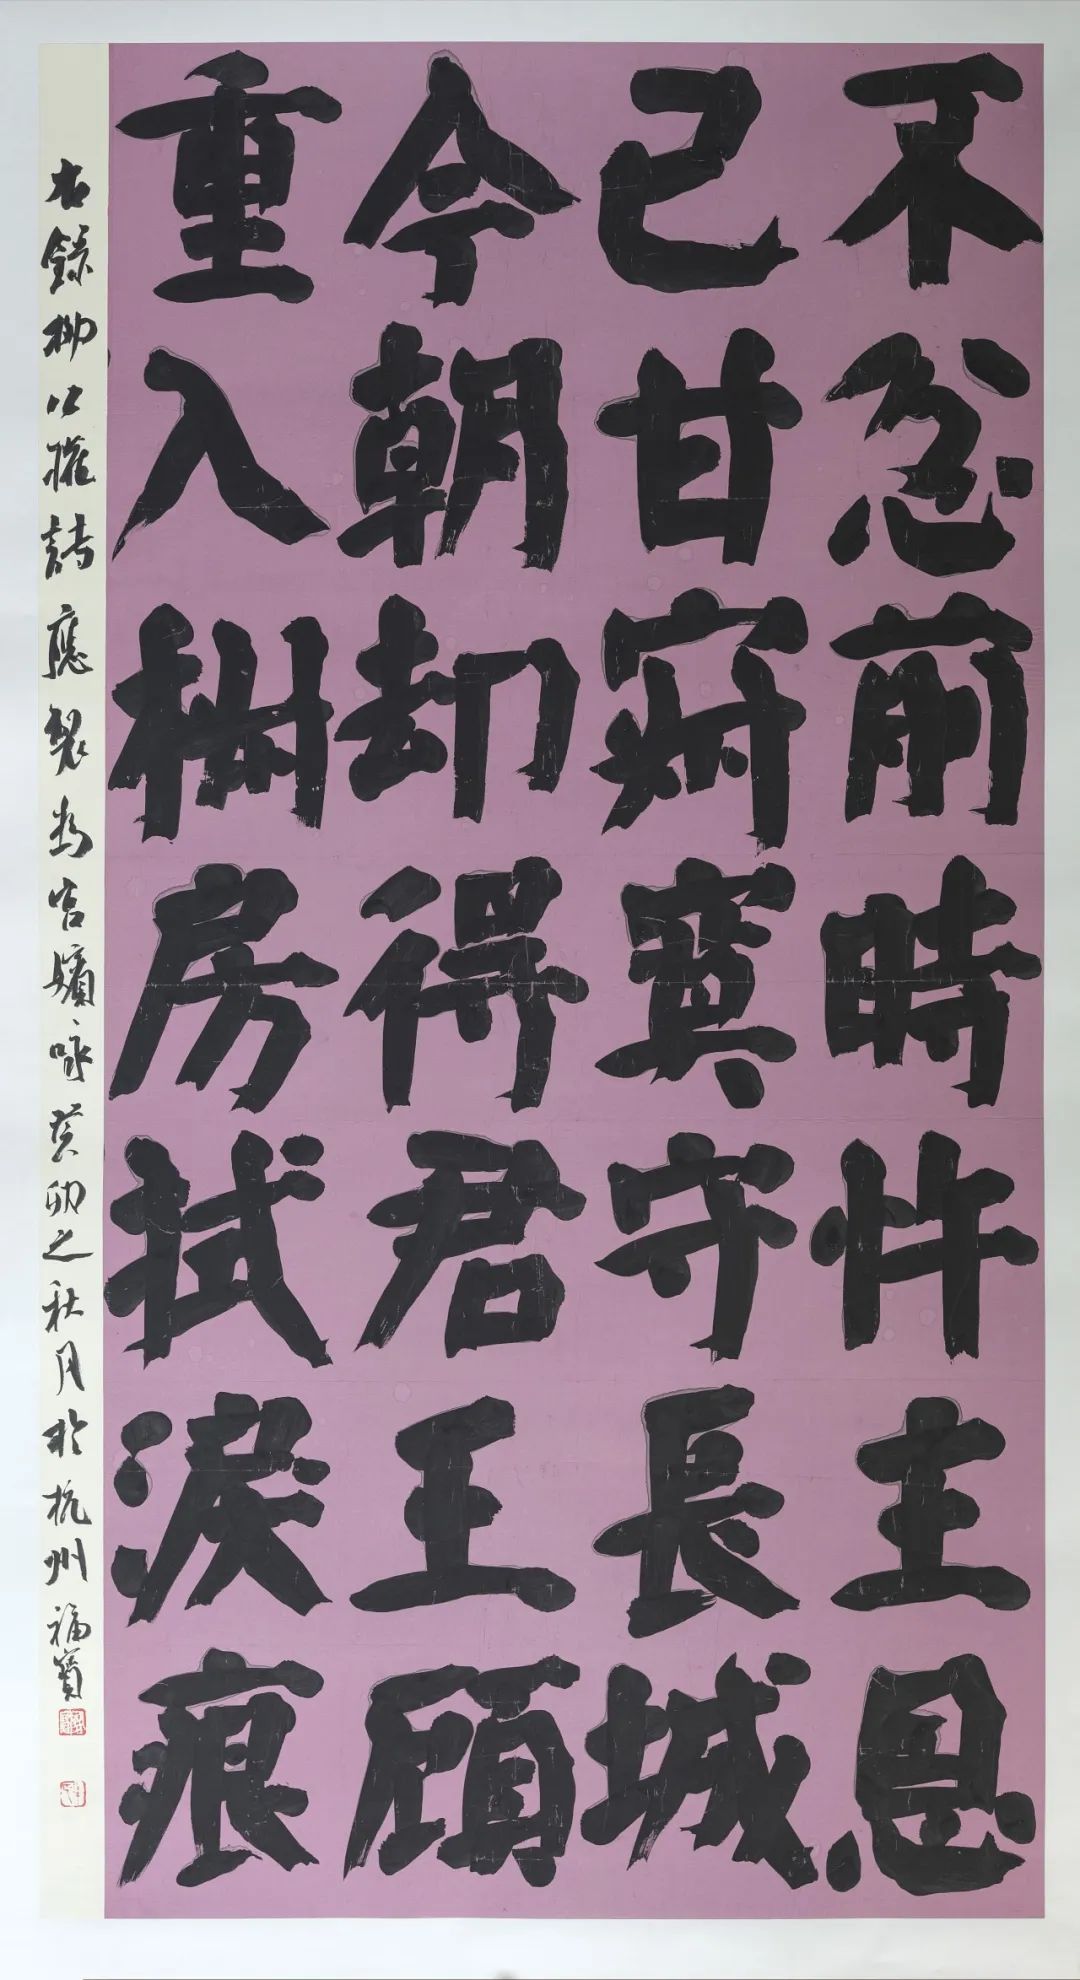 不忿前時忤主恩
已甘寂寞守長城
今朝却得君王顧
重入椒房拭淚痕
右錄柳公權詩應製為宮嬪咏癸卯之秋月於杭州福寶